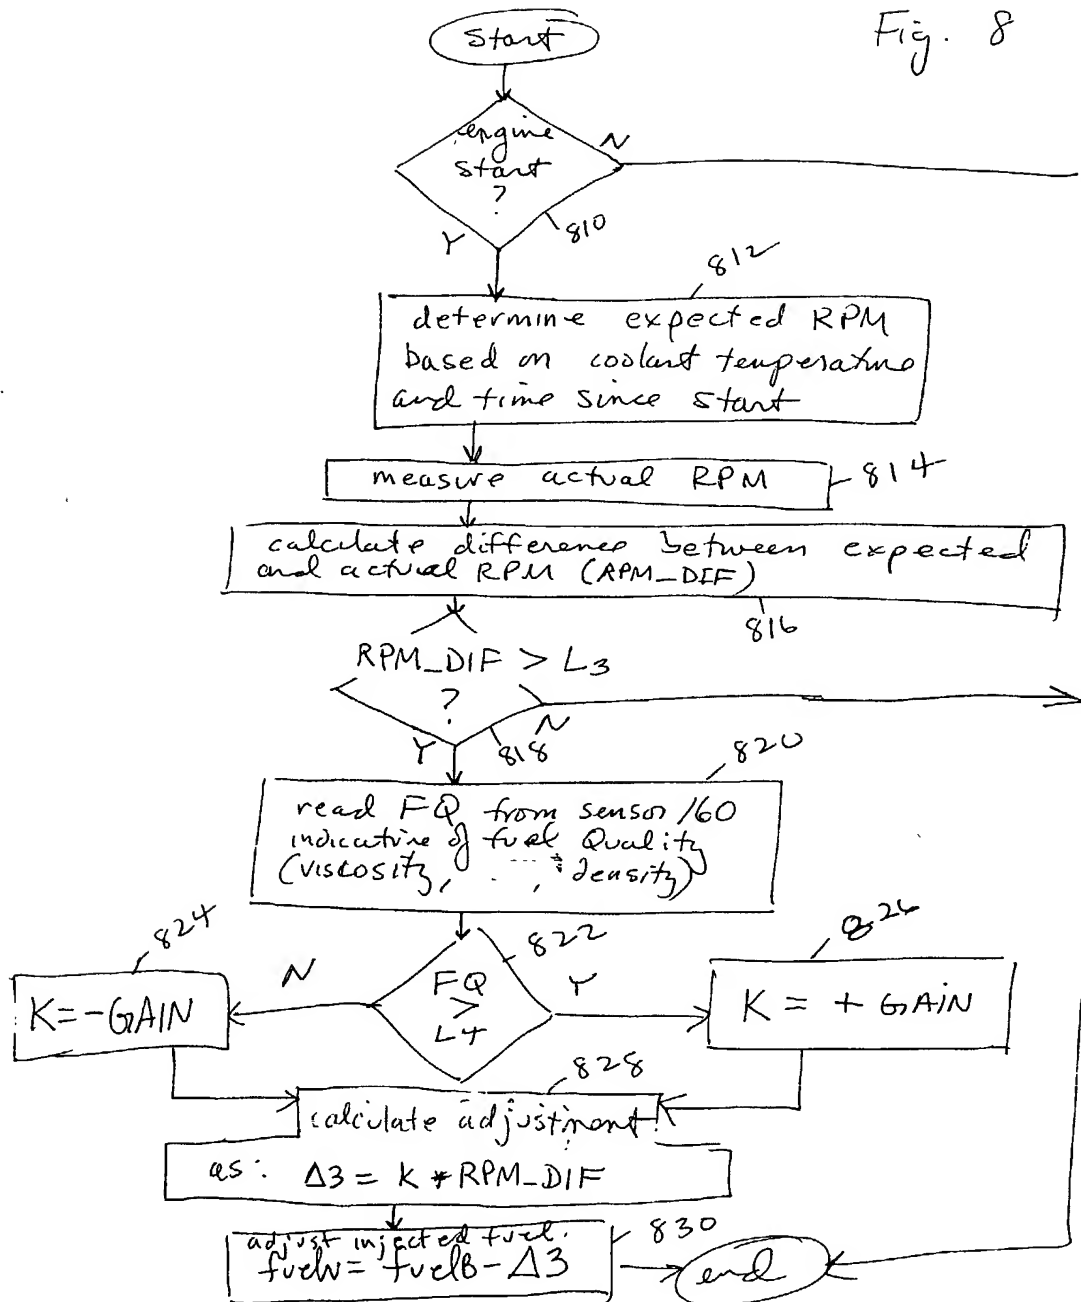 Fig. 8
Start
engine
start
?
N
810
Y
812
determine expected RPM
based on coolant temperature
and time since start
measure actual RPM
814
calculate difference between expected
and actual RPM (RPM_DIF)
816
RPM_DIF > L3
?
N
818
Y
820
read FQ from sensor 160
indicative of fuel Quality
(viscosity, ..., density)
824
822
826
N
FQ
>
L4
Y
K=-GAIN
K = + GAIN
828
calculate adjustment
as: Δ3 = K * RPM_DIF
830
adjust injected fuel.
fuelN = fuelB - Δ3
end